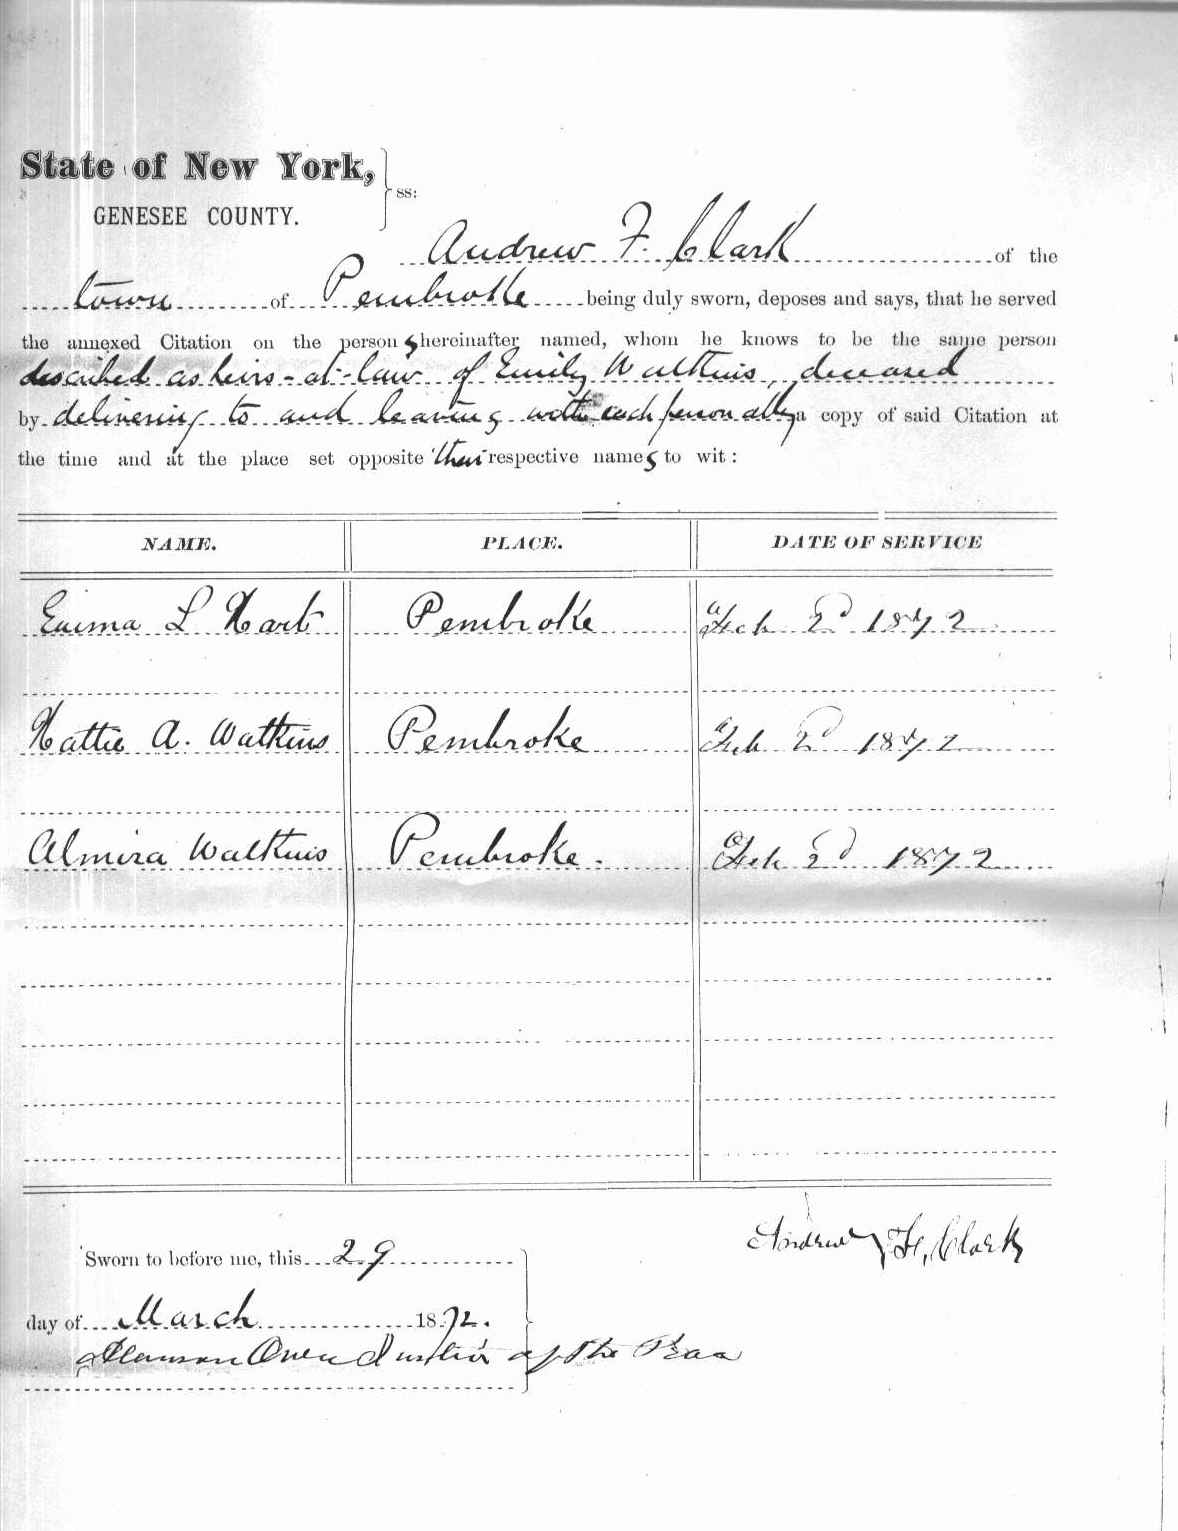 State of New York,
ss:
GENESEE COUNTY.
Andrew F. Clark of the
town of Pembroke being duly sworn, deposes and says, that he served
the annexed Citation on the persons hereinafter named, whom he knows to be the same person
described as heirs-at-law of Emily Watkins, deceased
by delivering to and leaving with each personally a copy of said Citation at
the time and at the place set opposite their respective names to wit:
NAME. PLACE. DATE OF SERVICE
Emma L Hart Pembroke Feb 2d 1872
Hattie A. Watkins Pembroke Feb 2d 1872
Almira Watkins Pembroke. Feb 2d 1872
Andrew F. Clark
Sworn to before me, this 29
day of March 1872.
Owen Justice of the Peace